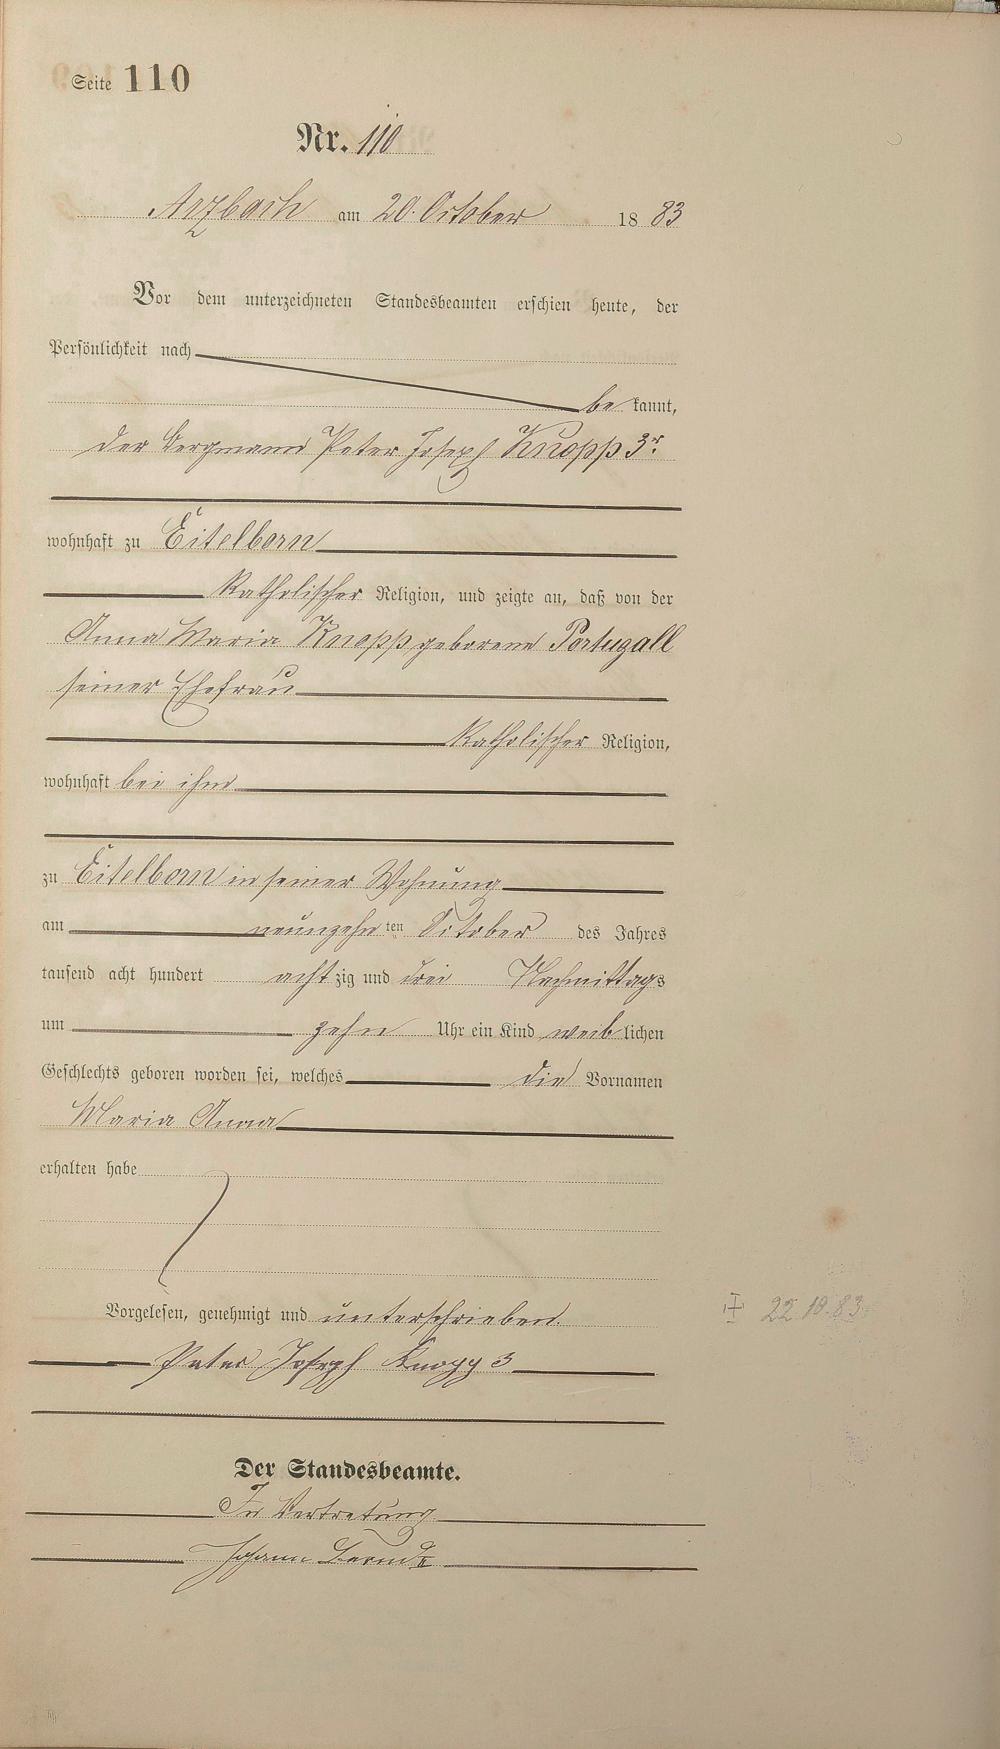 Seite 110
Nr. 110
Arzbach am 20. October 1883
Vor dem unterzeichneten Standesbeamten erschien heute, der
Persönlichkeit nach
bekannt,
der Bergmann Peter Joseph Knopp 3r.
wohnhaft zu Eitelborn
katholischer Religion, und zeigte an, daß von der
Anna Maria Knopp geborene Portugall
seiner Ehefrau
katholischer Religion,
wohnhaft bei ihm
zu Eitelborn in seiner Wohnung
am neunzehnten October des Jahres
tausend acht hundert achtzig und drei Nachmittags
um zehn Uhr ein Kind weiblichen
Geschlechts geboren worden sei, welches die Vornamen
Maria Anna
erhalten habe
Vorgelesen, genehmigt und unterschrieben
‡ 22.10.83.
Peter Joseph Knopp 3
Der Standesbeamte.
In Vertretung
Johann